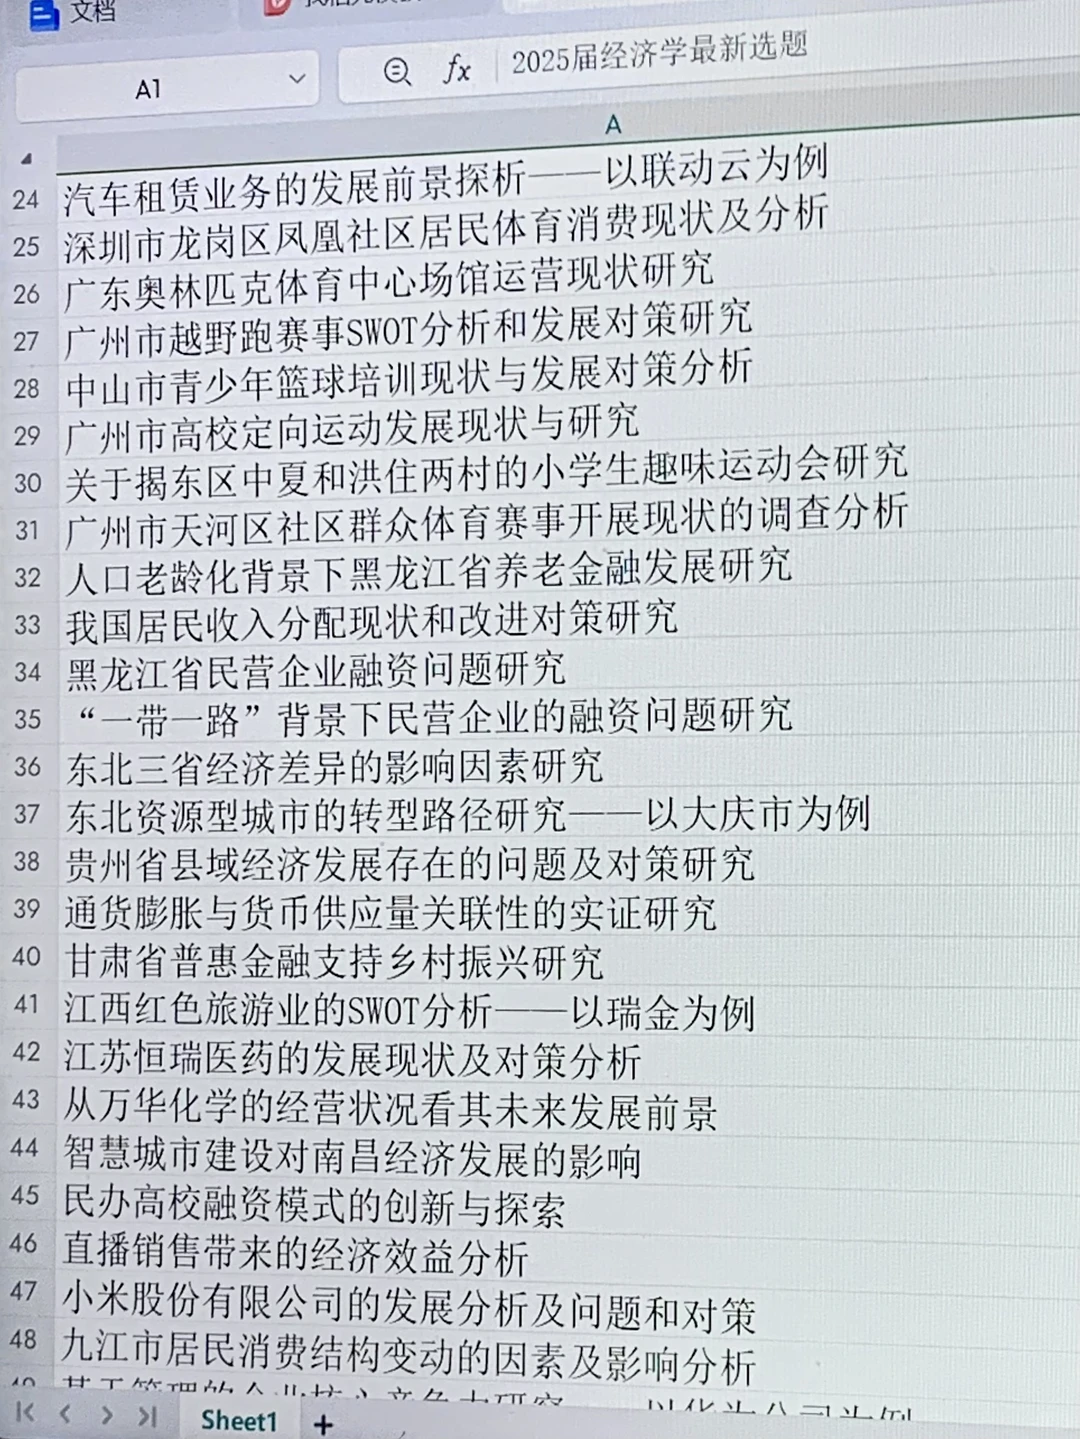 文档
A1
fx
2025届经济学最新选题
A
24 汽车租赁业务的发展前景探析——以联动云为例
25 深圳市龙岗区凤凰社区居民体育消费现状及分析
26 广东奥林匹克体育中心场馆运营现状研究
27 广州市越野跑赛事SWOT分析和发展对策研究
28 中山市青少年篮球培训现状与发展对策分析
29 广州市高校定向运动发展现状与研究
30 关于揭东区中夏和洪住两村的小学生趣味运动会研究
31 广州市天河区社区群众体育赛事开展现状的调查分析
32 人口老龄化背景下黑龙江省养老金融发展研究
33 我国居民收入分配现状和改进对策研究
34 黑龙江省民营企业融资问题研究
35 “一带一路”背景下民营企业的融资问题研究
36 东北三省经济差异的影响因素研究
37 东北资源型城市的转型路径研究——以大庆市为例
38 贵州省县域经济发展存在的问题及对策研究
39 通货膨胀与货币供应量关联性的实证研究
40 甘肃省普惠金融支持乡村振兴研究
41 江西红色旅游业的SWOT分析——以瑞金为例
42 江苏恒瑞医药的发展现状及对策分析
43 从万华化学的经营状况看其未来发展前景
44 智慧城市建设对南昌经济发展的影响
45 民办高校融资模式的创新与探索
46 直播销售带来的经济效益分析
47 小米股份有限公司的发展分析及问题和对策
48 九江市居民消费结构变动的因素及影响分析
Sheet1